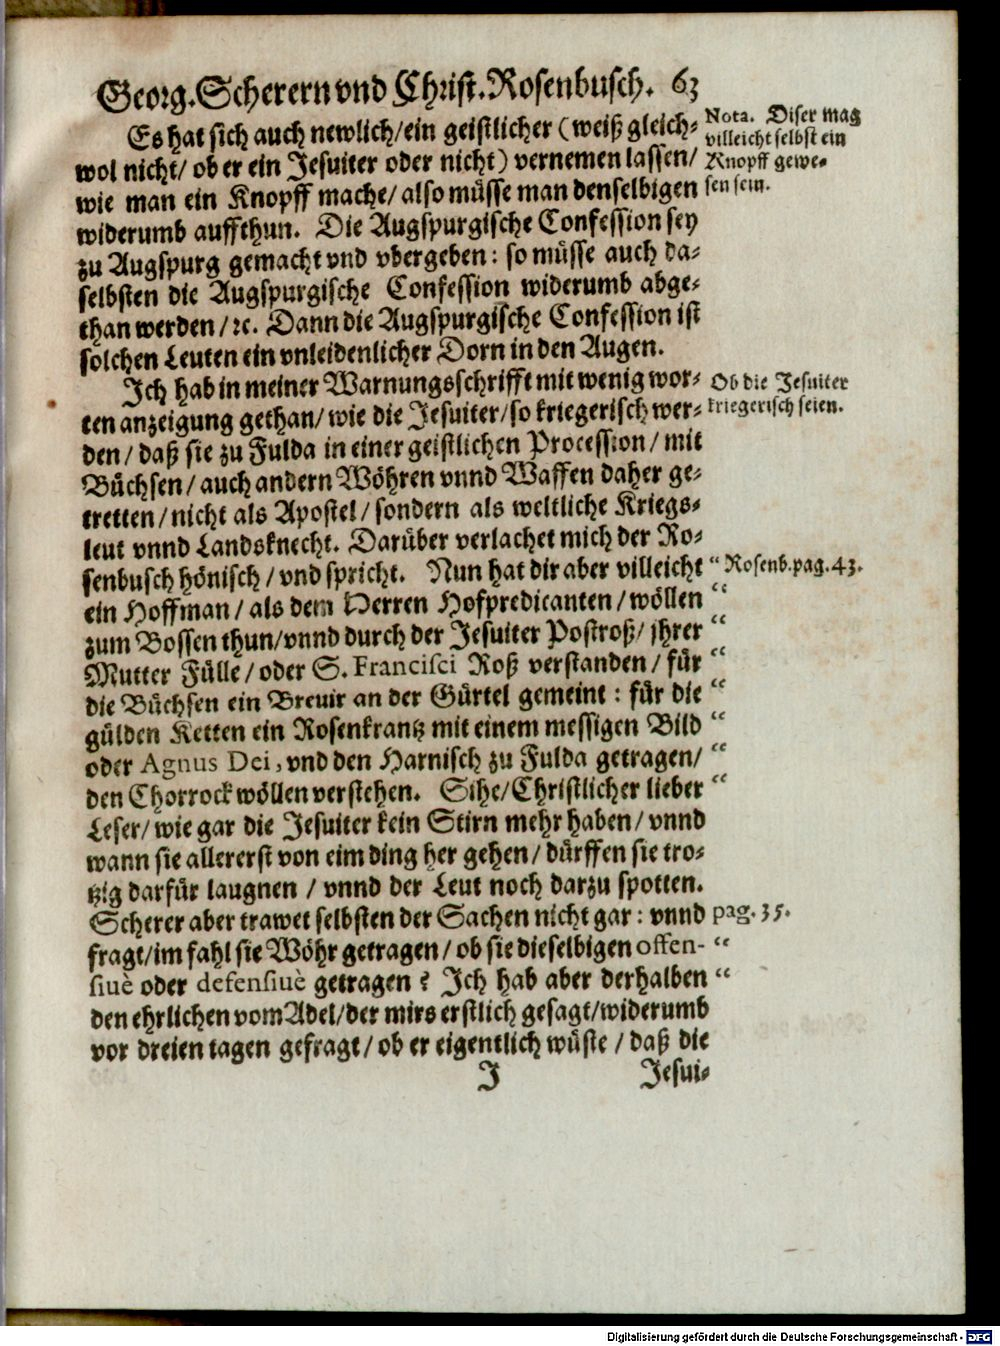 Georg. Scherern vnd Christ. Rosenbusch. 63
Es hat sich auch newlich/ein geistlicher (weiß gleich-
wol nicht/ ob er ein Jesuiter oder nicht) vernemen lassen/
wie man ein Knopff mache/ also müsse man denselbigen
widerumb auffthun. Die Augspurgische Confession sey
zu Augspurg gemacht vnd vbergeben: so müsse auch da-
selbsten die Augspurgische Confession widerumb abge-
than werden/ ꝛc. Dann die Augspurgische Confession ist
solchen Leuten ein vnleidenlicher Dorn in den Augen.
Nota. Diser mag
villeicht selbst ein
Knopff gewe-
sen sein.
Ich hab in meiner Warnungsschrifft mit wenig wor-
ten anzeigung gethan/ wie die Jesuiter/ so kriegerisch wer-
den/ daß sie zu Fulda in einer geistlichen Procession/ mit
Büchsen/ auch andern Wöhren vnnd Waffen daher ge-
tretten/ nicht als Apostel/ sondern als weltliche Kriegs-
leut vnnd Landsknecht. Darüber verlachet mich der Ro-
senbusch hönisch/ vnd spricht. Nun hat dir aber villeicht
ein Hoffman/ als dem Herren Hofpredicanten/ wöllen
zum Bossen thun/vnnd durch der Jesuiter Postroß/ jhrer
Mutter Fülle/ oder S. Francisci Roß verstanden/ für
die Büchsen ein Brevir an der Gürtel gemeint: für die
gülden Ketten ein Rosenkrantz mit einem messigen Bild
oder Agnus Dei, vnd den Harnisch zu Fulda getragen/
den Chorrock wöllen verstehen. Sihe/Christlicher lieber
Leser/ wie gar die Jesuiter kein Stirn mehr haben/ vnnd
wann sie allererst von eim ding her gehen/ dürffen sie tro-
tzig darfür laugnen / vnnd der Leut noch darzu spotten.
Scherer aber trawet selbsten der Sachen nicht gar: vnnd
fragt/im fahl sie Wöhr getragen/ ob sie dieselbigen offen-
siuè oder defensiuè getragen? Ich hab aber derhalben
den ehrlichen vom Adel/der mirs erstlich gesagt/widerumb
vor dreien tagen gefragt/ ob er eigentlich wüste / daß die
Ob die Jesuiter
kriegerisch seien.
“ Rosenb. pag. 43.
“
“
“
“
“
“
“
pag. 35.
“
“
J Jesui-
Digitalisierung gefördert durch die Deutsche Forschungsgemeinschaft - DFG